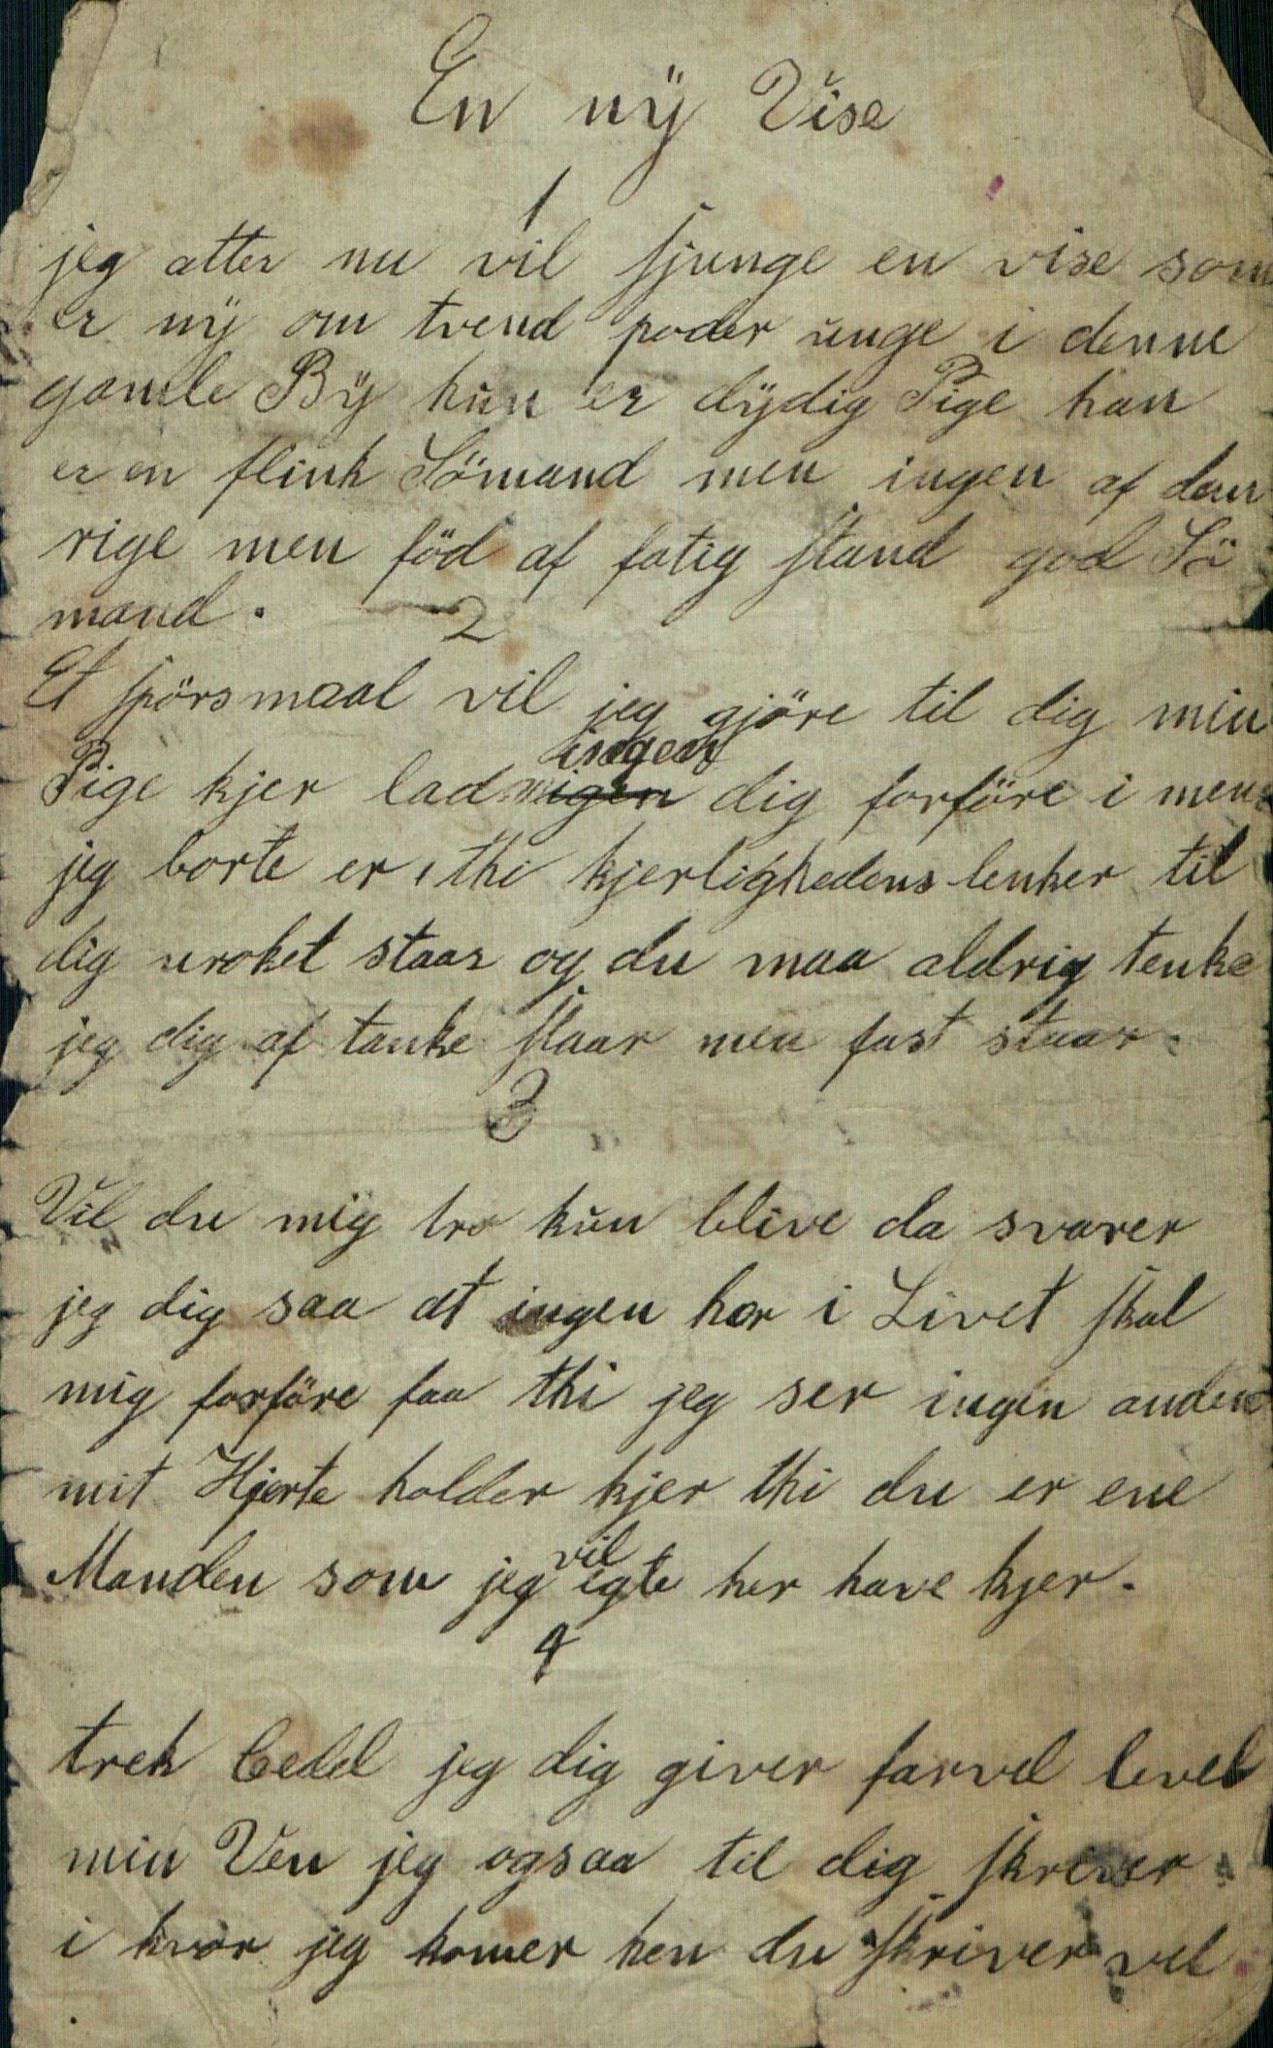 En nÿ Vise
1
jeg atter nu vil sjunge en vise som
er nÿ om tvend poder unge i denne
gamle Bÿ hun er dÿdig Pige han
er en flink Sömand men ingen af dem
rige men föd af fatig stand god Sö
mand.
2
Et spörsmaal vil jeg gjöre til dig min
ingen
Pige kjer lad dig forföre i mens
jeg borte er, thi kjerlighedens lenker til
dig uroket staar og du maa aldrig tenke
jeg dig af tanke slaar men fast staar.
3
Vil du mig tro kun blive da svarer
jeg dig saa at ingen her i Livet skal
mig forföre faa thi jeg ser ingen anden
mit Hjerte holder kjer thi du er ene
vil
Manden som jeg egte her have kjer.
4
trek jeg dig giver farvel level
min Ven jeg ogsaa til dig skriver
i hvor jeg komer hen du skriver vel